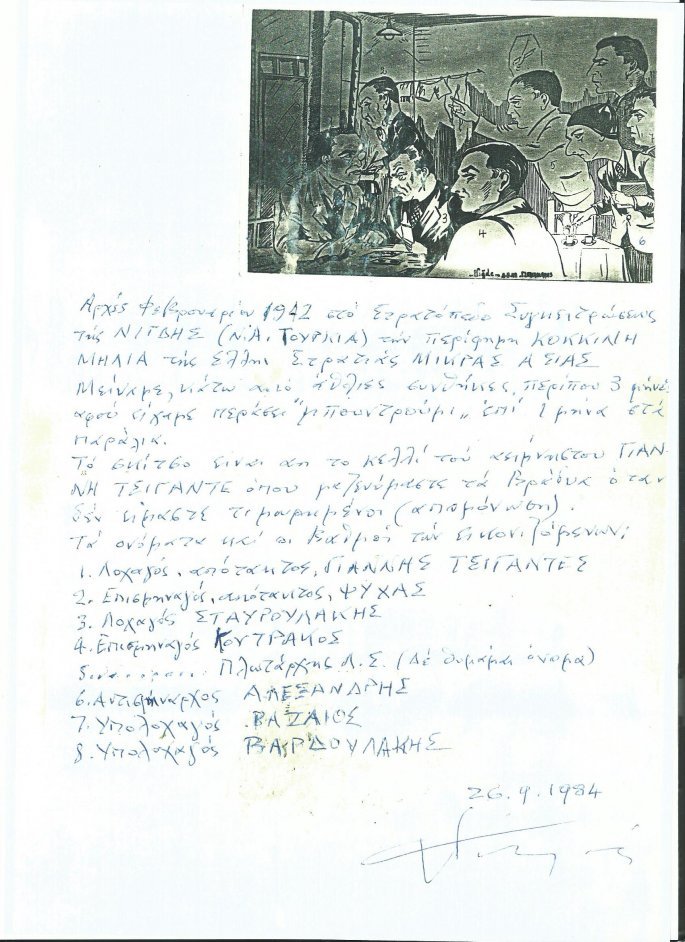 2
3
4
5
6
Αρχές Φεβρουαρίου 1942 στό Στρατόπεδο Συγκεντρώσεως
τής ΝΙΓΔΗΣ (Ν.Α. ΤΟΥΡΚΙΑ) τήν περίφημη ΚΟΚΚΙΝΗ
ΜΗΛΙΑ τής Ελλην Στρατιάς ΜΙΚΡΑΣ ΑΣΙΑΣ
Μείναμε, κάτω από άθλιες συνθήκες, περίπου 3 μήνες
αφού είχαμε περάσει "μπουντρούμι" επί 1 μήνα στά
παράλια.
Τό σκίτσο είναι απ το κελλί τού αειμνήστου ΓΙΑΝ-
ΝΗ ΤΣΙΓΑΝΤΕ όπου μαζευόμαστε τά Βράδυα όταν
δέν είμαστε τιμωρημένοι (απομόνωση).
Τά ονόματα καί οι Βαθμοί τών εικονιζόμενων:
1. Λοχαγός, απότακτος, ΓΙΑΝΝΗΣ ΤΣΙΓΑΝΤΕΣ
2. Επισμηναγός, απότακτος, ΨΥΧΑΣ
3. Λοχαγός ΣΤΑΥΡΟΥΛΑΚΗΣ
4. Επισμηναγός ΚΟΥΤΡΑΚΟΣ
5. Πλωτάρχης Λ.Σ. (Δέ θυμάμαι όνομα)
6. Αντισμήναρχος ΑΛΕΞΑΝΔΡΗΣ
7. Υπολοχαγός ΒΑΖΑΙΟΣ
8. Υπολοχαγός ΒΑΡΔΟΥΛΑΚΗΣ
26.9.1984